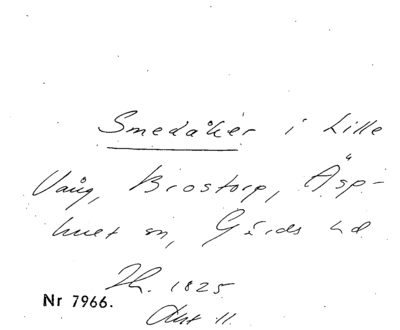 Smedåker i Lille
Vång, Brostorp, Äsp-
huet sn, Gärds hd
Th. 1825
Akt 11.
Nr 7966.